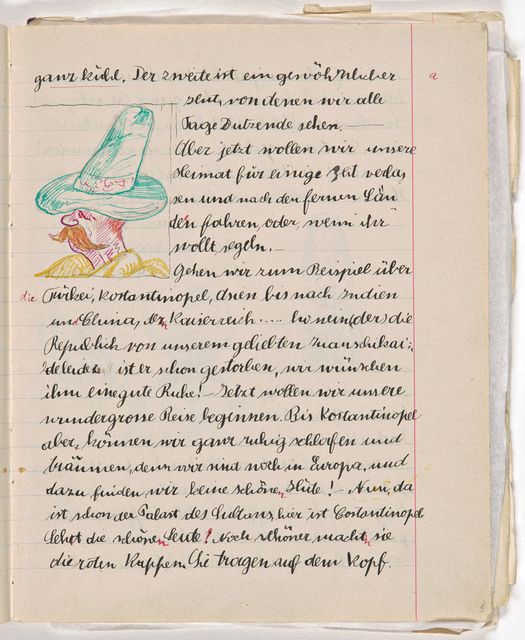 ganz kühl. Der zweite ist ein gewöhnlicher a
Hut, von denen wir alle
Tage Dutzende sehen. —
Aber jetzt wollen wir unsere
Heimat für einige Zeit verlas
sen und nach den fernen Län
dern fahren, oder, wenn ihr
wollt segeln. —
Gehen wir zum Beispiel über
die Türkei, Kostantinopel, Asien bis nach Indien
und China, das Kaiserreich .... ho nein (der) die
Republick von unserem geliebten Juanschikai;
leider ist er schon gestorben, wir wünschen
ihm eine gute Ruhe! — Jetzt wollen wir unsere
wundergrosse Reise beginnen. Bis Kostantinopel
aber, können wir ganz ruhig schlafen und
träumen, denn wir sind noch in Europa, und
dazu finden wir keine schönen Hüte! — Nun, da
ist schon der Palast des Sultans, hier ist Costantinopel
Seht die schönen Leute! Noch schöner machen sie
die roten Kappen. Sie tragen auf dem Kopf.